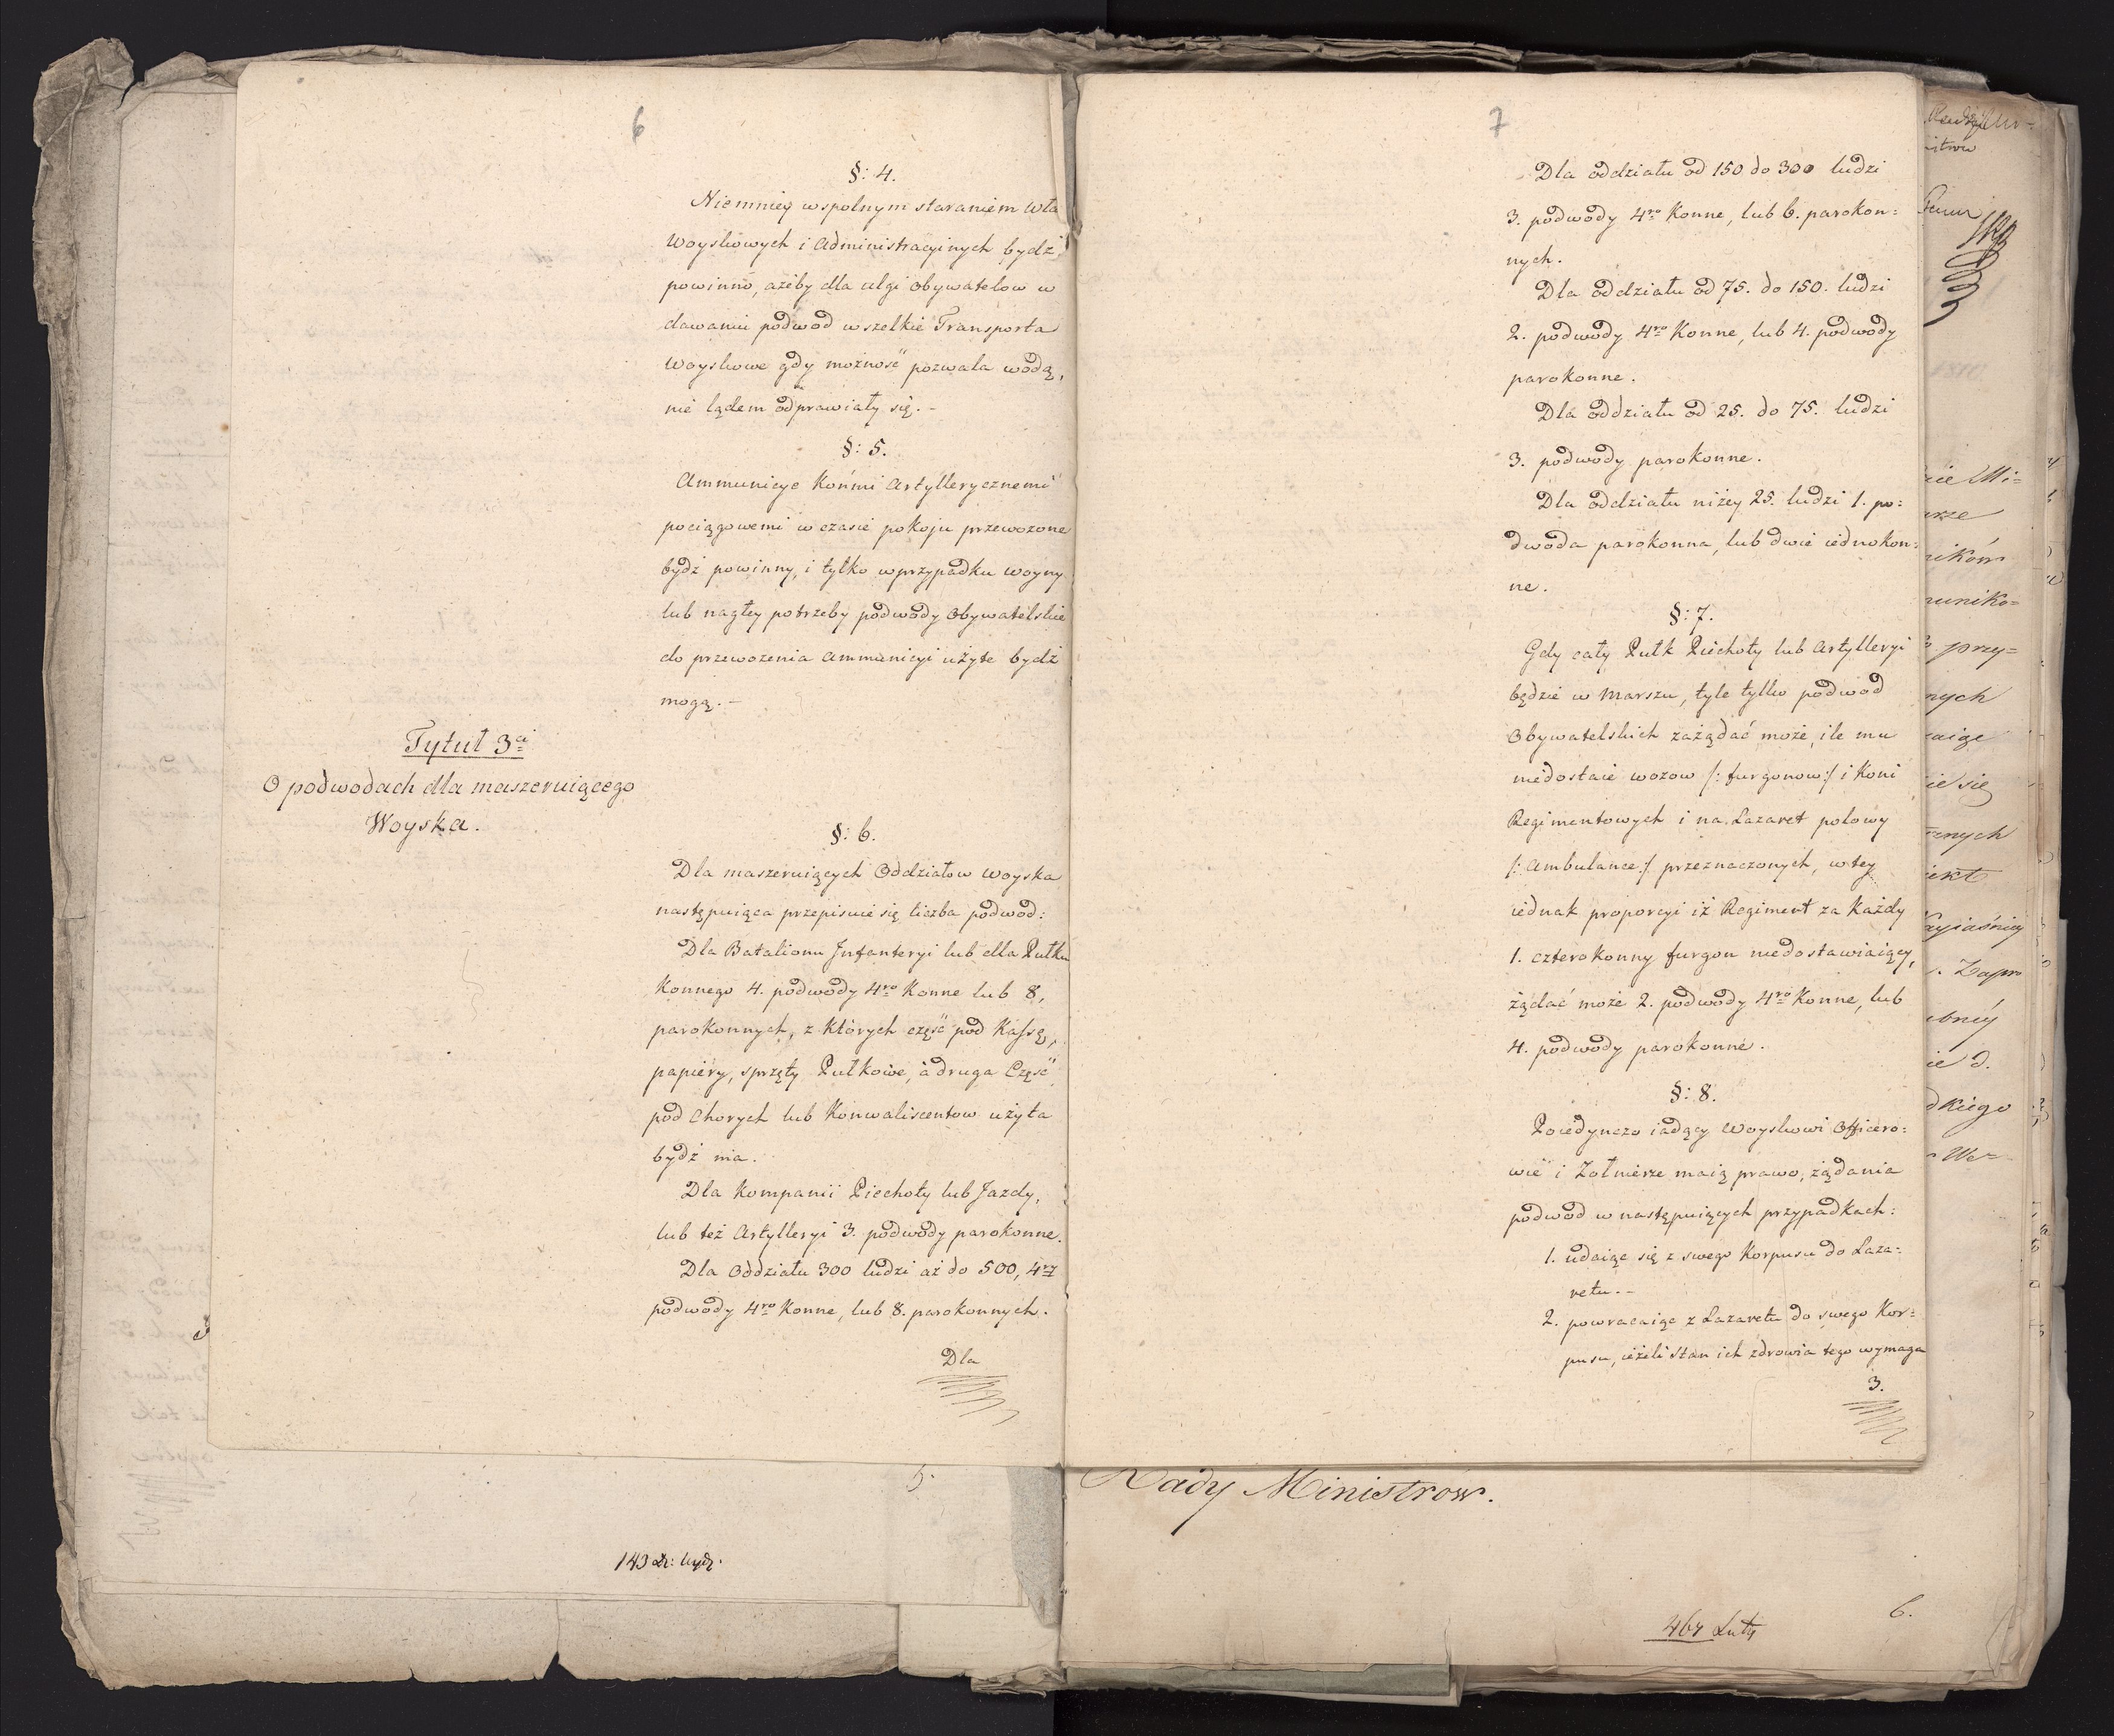 6
§: 4.
Niemniey wspolnym staraniem Wła
Woyskowych i Administracyinych bydź
powinno, ażeby dla ulgi Obywatelow w
dawaniu podwod wszelkie Transporta
Woyskowe gdy możność pozwala wodą,
nie lądem odprawiały się. -
§: 5.
Ammunicye Końmi Artyllerycznemi
pociągowemi w czasie pokoju przewozone
bydź powinny, i tylko w przypadku Woyny
lub nagłey potrzeby podwody Obywatelskie
do przewozenia Ammunicyi użyte bydź
mogą. -
Tytuł 3ci
O podwodach dla maszeruiącego
Woyska.
§: 6.
Dla maszeruiących Oddziałow Woyska
następuiąca przepisuie się liczba podwod:
Dla Batalionu Infanteryi lub dla Pułku
Konnego 4. podwody 4ro Konne lub 8,
parokonnych, z Których część pod Kassę,
papiery, sprzęty Pułkowe, a druga Część
pod Chorych lub Konwaliscentow użyta
bydź ma.
Dla Kompanii Piechoty lub Jazdy,
lub też Artylleryi 3. podwody parokonne.
Dla Oddziału 300 ludzi aż do 500, 4ry
podwody 4ro Konne, lub 8. parokonnych.
Dla
5.
143
7
Dla oddziału od 150 do 300 ludzi
3. podwody 4ro Konne, lub 6. parokon:
nych.
Dla oddziału od 75. do 150. ludzi
2. podwody 4ro Konne, lub 4. podwody
parokonne.
Dla oddziału od 25. do 75. ludzi
3. podwody parokonne.
Dla oddziału niżey 25. ludzi 1. po:
dwoda parokonna, lub dwie iednokon:
ne.
§: 7.
Gdy cały Pułk Piechoty lub Artylleryi
będzie w Marszu, tyle tylko podwod
Obywatelskich zażądać może, ile mu
niedostaie wozow /: furgonow :/ i Koni
Regimentowych i na Lazaret polowy
/: Ambulance :/ przeznaczonych, w tey
iednak proporcyi iż Regiment za Każdy
1. czterokonny furgon niedostawiaiący,
żądać może 2. podwody 4ro Konne, lub
4. podwody parokonne.
§: 8.
Poiedynczo iadący Woyskowi Officero:
wie i Zołnierze maią prawo, żądania
podwod w następuiących przypadkach:
1. udaiąc się z swego Korpusu do Laza:
retu. -
2. powracaiąc z Lazaretu do swego Kor:
pusu, ieżeli Stan ich zdrowia tego wymaga
3.
Rady Ministrow.
6.